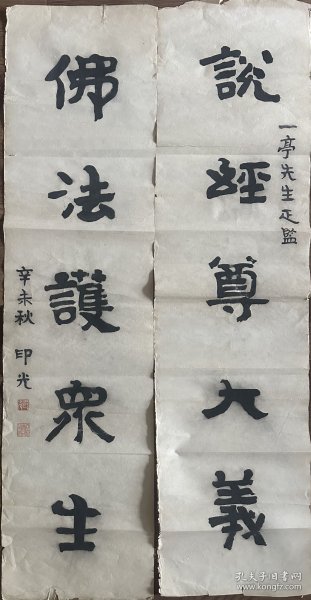 說經尊大義
一亭先生正監
佛法護眾生
辛未秋 印光
孔夫子旧书网
www.kongfz.com